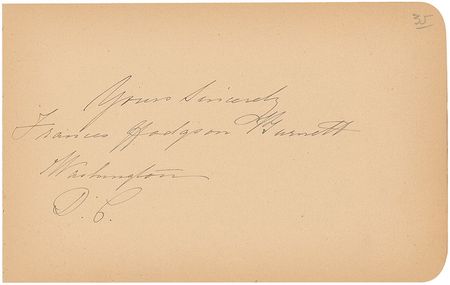 35
Yours Sincerely
Frances Hodgson Burnett
Washington
D. C.